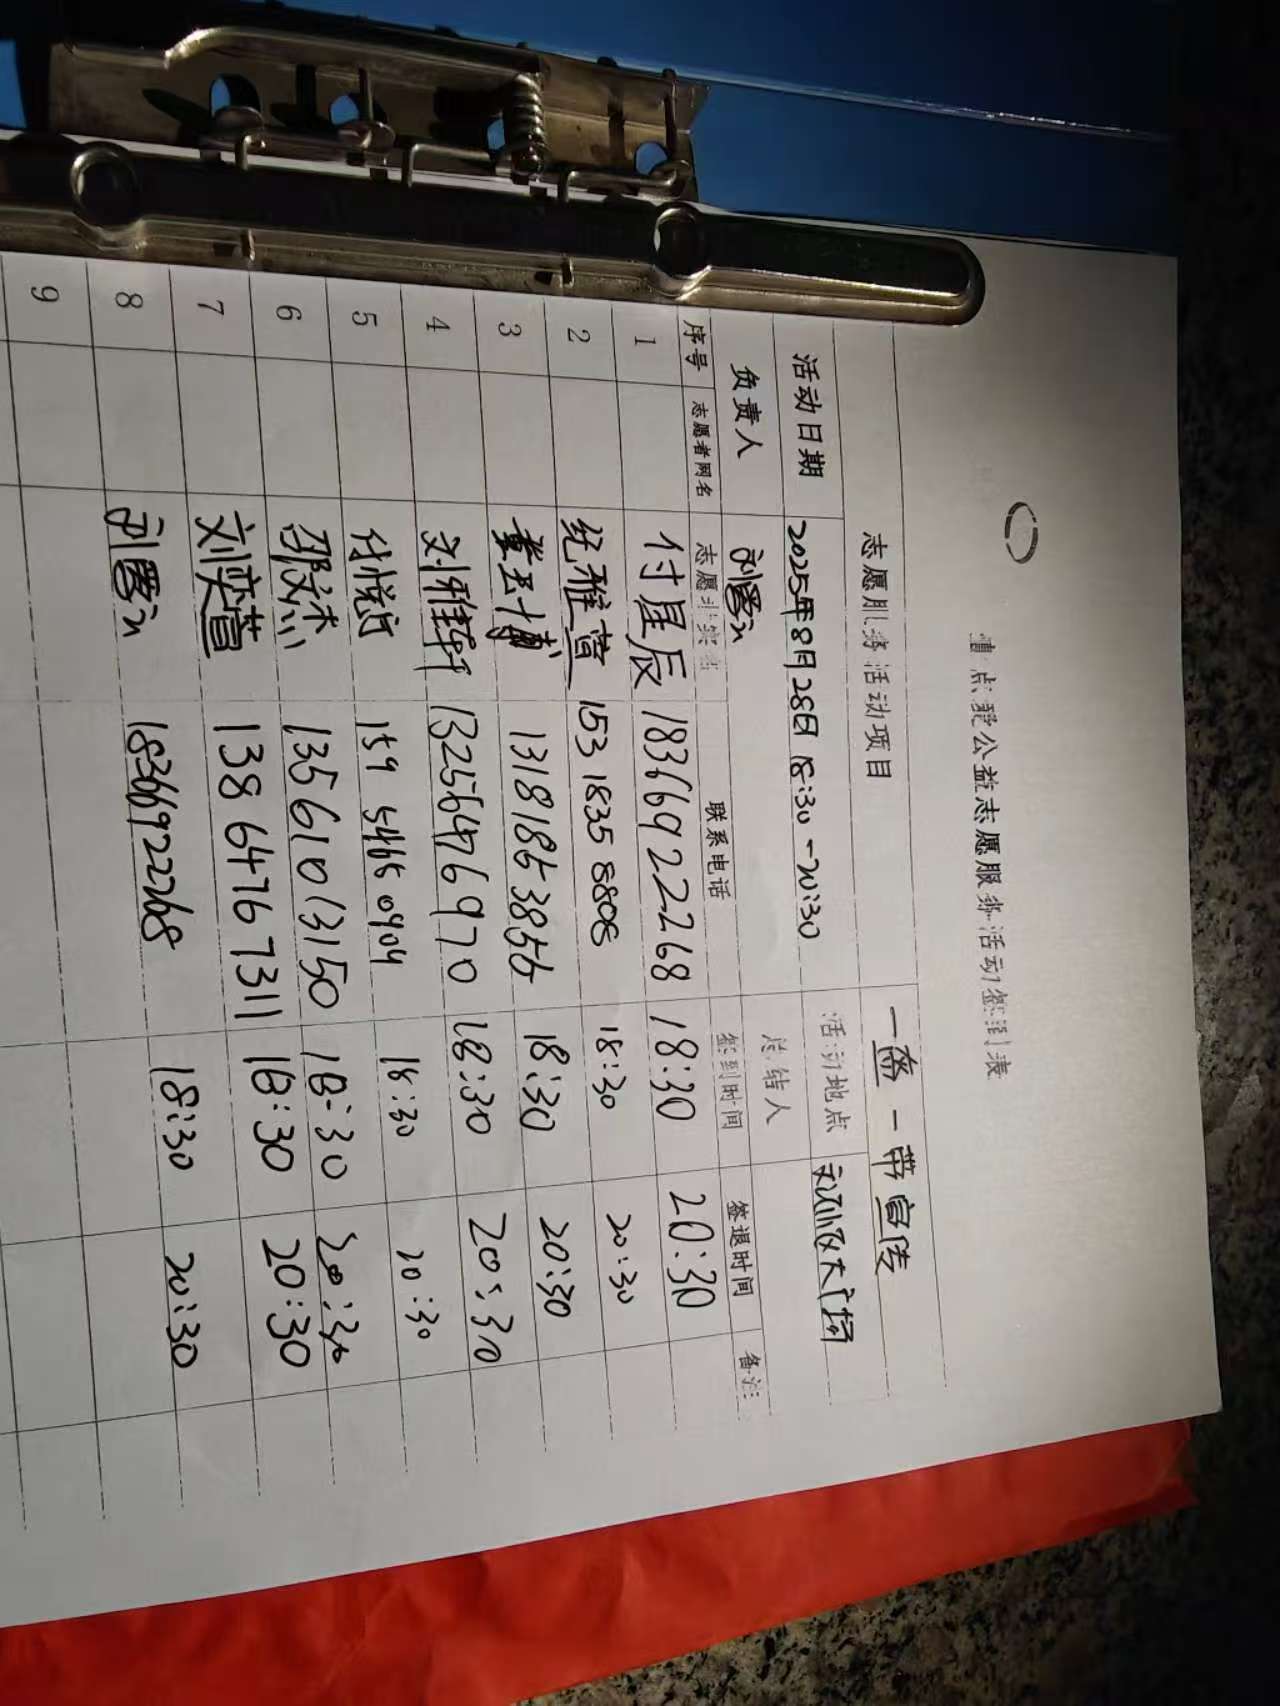 点爱公益志愿服务活动签到表
志愿服务活动项目 一盔一带宣传
活动日期 2025年8月28日 18:30-20:30 活动地点
负责人 总结人
序号 志愿者网名 志愿者实名 联系电话 签到时间 签退时间 备注
1 付星辰 18366922268 18:30 20:30
2 153 1835 8808 18:30 20:30
3 18:30 20:30
4 刘雅轩 13256476970 18:30 20:30
5 18:30 20:30
6 13561013150 18:30 20:30
7 刘奕萱 138 6476 7311 18:30 20:30
8 18366922268 18:30 20:30
9